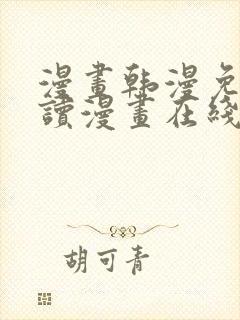 漫畫韩漫免
讀漫畫在綫
胡可青